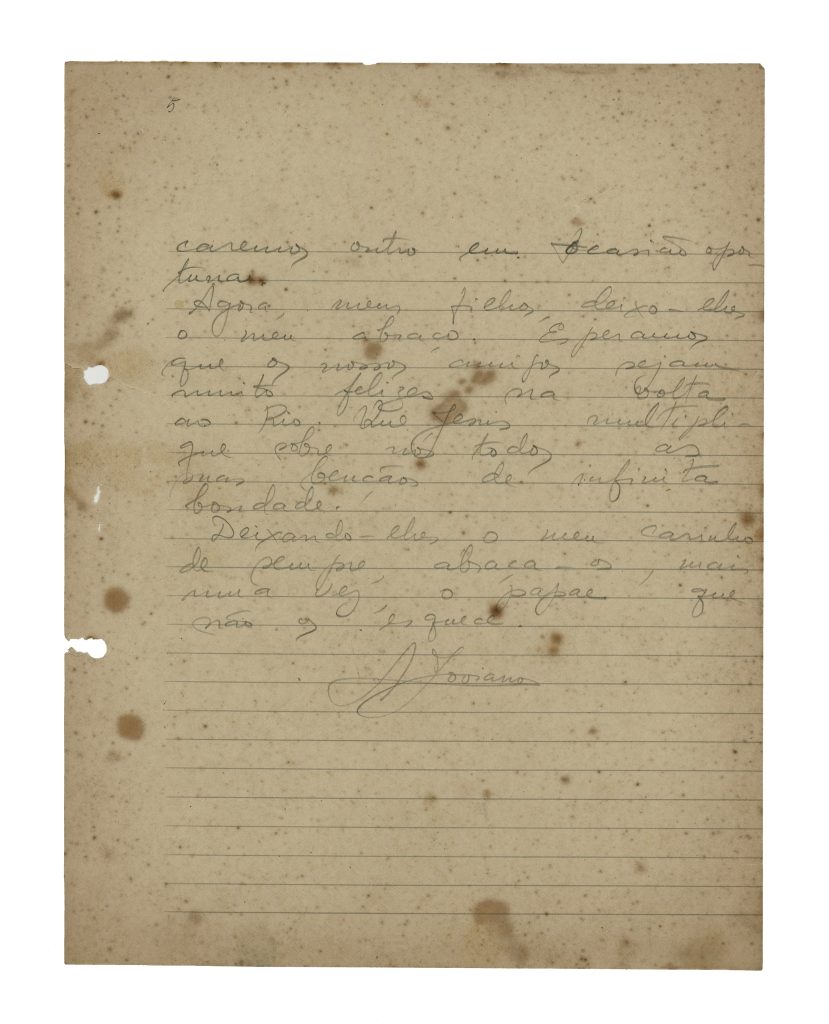 5
caremos outro em ocasião opor-
tuna.
Agora, meus filhos, deixo-lhes
o meu abraço. Esperamos
que os nossos amigos sejam
muito felizes na volta
ao Rio. Que Jesus multipli-
que sobre nós todos as
suas bençãos de infinita
bondade.
Deixando-lhes o meu carinho
de sempre, abraça-os, mais
uma vez, o papae que
não os esquece.
A Joviano